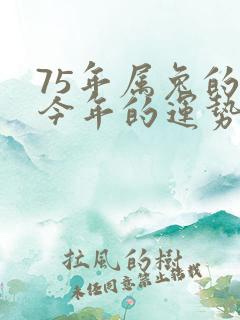 75年属兔的
今年的运势
拉风的树
未经同意禁止转载